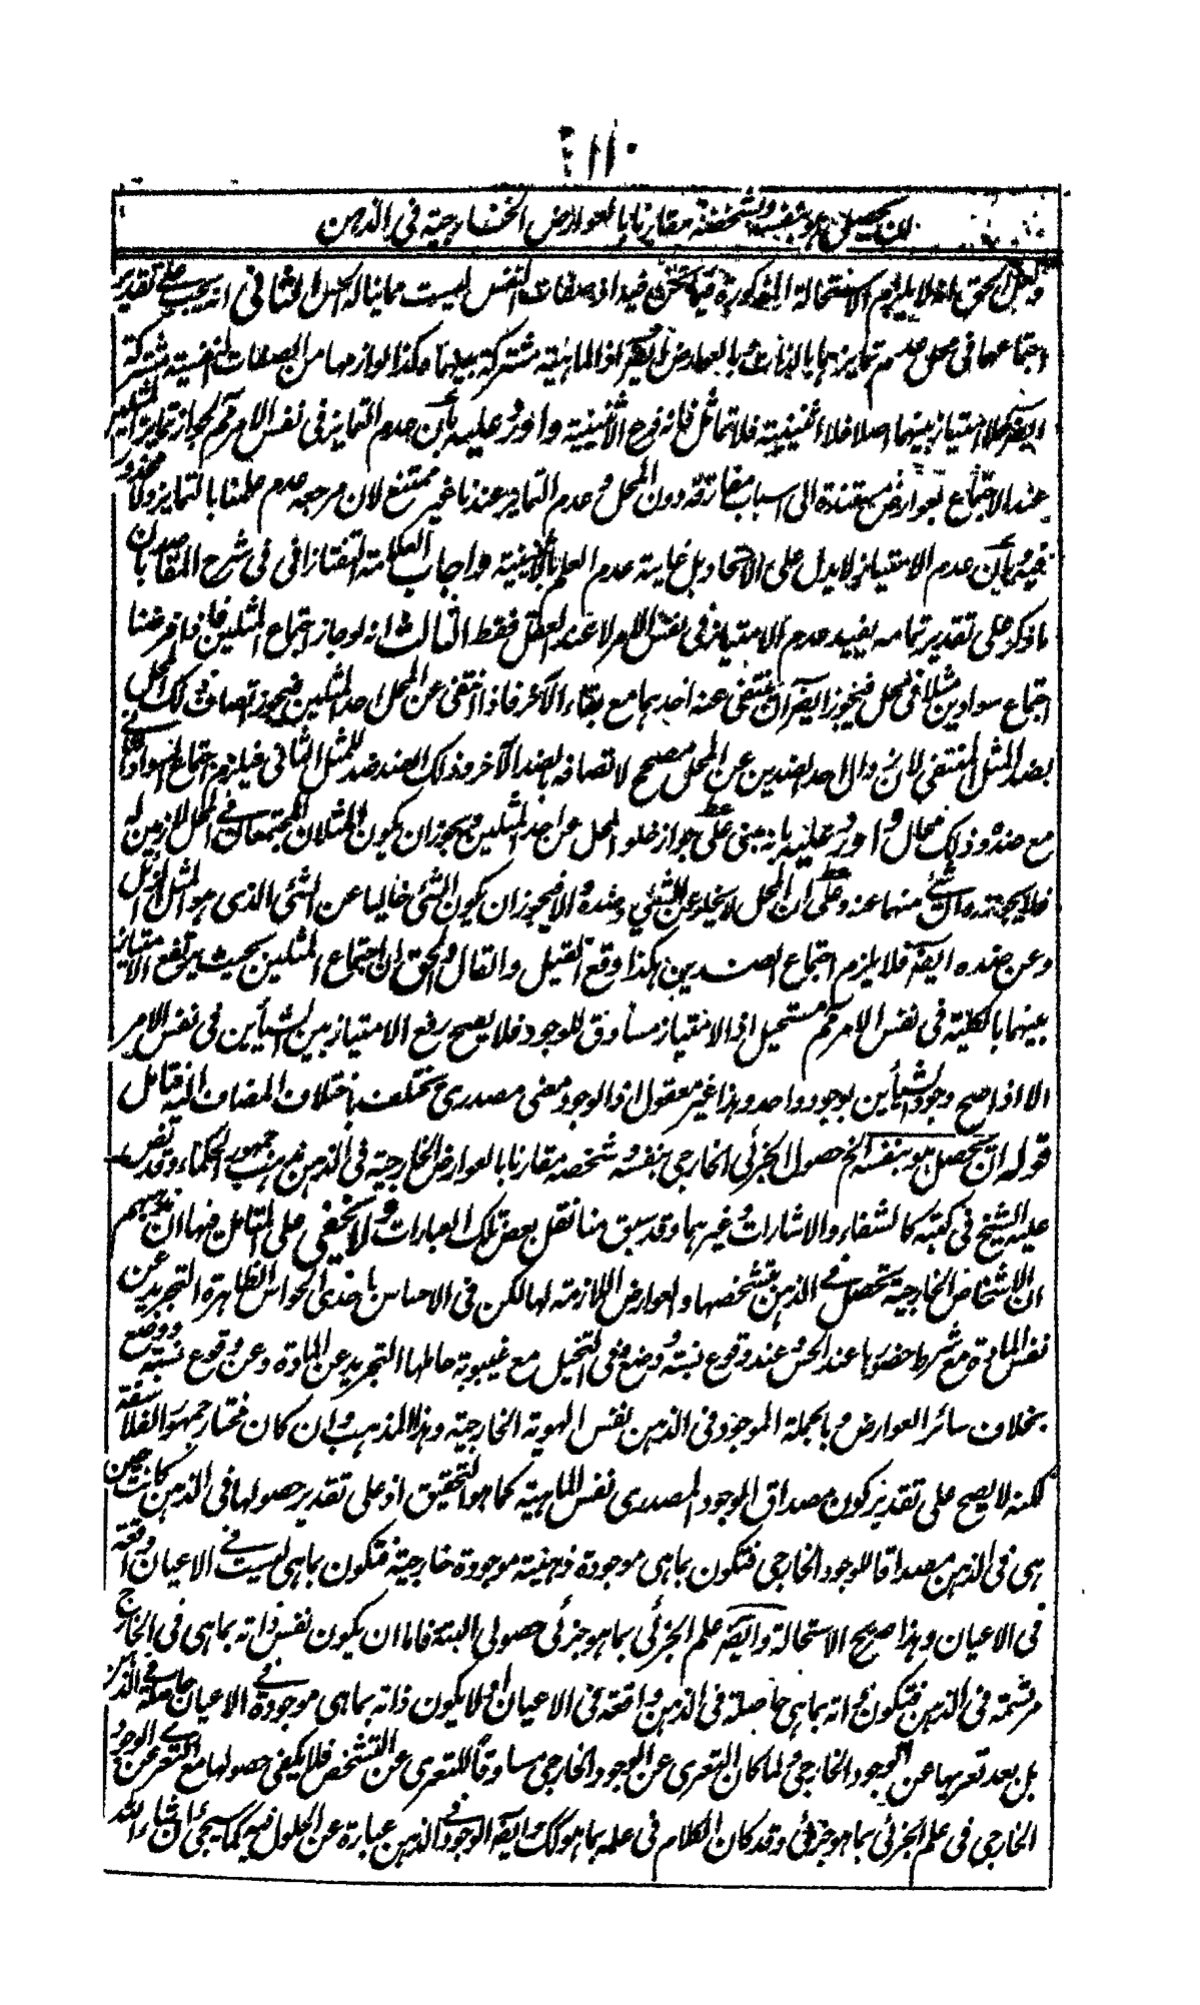 ١١٠
لان يحصل هو بنفسه وتشخصه مقارنا بالعوارض الخارجية فى الذهن
ولعل الحق انه لا يلزم الاستحالة المذكورة فيما نحن فيه اذ صفات النفس ليست ممانياله الحل الثانى انه يجب على تقدير
اجتماعهما فى محل عدم تمايزهما بالذات وبالعوارض ايضا اذ الماهية مشتركة بينهما وكذا لوازمها من الصفات النفسية مشتركة
ايضا فلا امتياز بينهما اصلا فلا اثنينية فلا تماثل فانه فرع الاثنينية واورد عليه بأن عدم التمايز فى نفس الامر مم لجواز تمايز المثلين
عند الاجتماع بعوارض مستندة الى اسباب مفارقة دون المحل وعدم التمايز عندنا غير ممتنع لان مرجعه عدم علمنا بالتمايز ولا محذور
فيه وبأن عدم الامتياز لا يدل على الاتحاد بل غاية عدم العلم بالاثنينية واجاب العلامة التفتازانى فى شرح المقاصد بان
ما ذكر على تقدير تمامه يفيد عدم الامتياز فى نفس الامر لا عند العقل فقط الثالث انه لو جاز اجتماع المثلين فاذا فرضنا
اجتماع سوادين مثلا فى محل فيجوز ايضا ان ينتفى عنه احدهما مع بقاء الآخر فاذا انتفى عن المحل احد المثلين فيجوز اتصاف ذلك المحل
بضد المثل المنتفى لان زوال احد الضدين عن المحل مصحح لاتصافه بالضد الآخر وذلك الضد ضد للمثل الثانى فيلزم اجتماع السواد
مع ضده وذلك محال واورد عليه بانه مبنى على جواز خلو المحل عن احد المثلين ويجوز ان يكون المثلان المجتمعان فى المحل لازمين له
فلا يجوز زوال شئ منهما عنه وعلى ان المحل لا يخلو عن الشئ وضده والا فيجوز ان يكون الشئ خاليا عن الشئ الذى هو المثل الزائل
وعن ضده ايضا فلا يلزم اجتماع الضدين هكذا وقع القيل والقال والحق ان اجتماع المثلين بحيث يرتفع الامتياز
بينهما بالكلية فى نفس الامر مستحيل اذ الامتياز مساوق للوجود فلا يصح رفع الامتياز بين الشيأين فى نفس الامر
الا اذا صح وجود الشيأين بوجود واحد وهذا غير معقول اذ الوجود معنى مصدرى يختلف باختلاف المضاف اليه تأمل
قوله ان يحصل هو بنفسه الخ حصول الجزئى الخارجى بنفسه وشخصه مقارنا بالعوارض الخارجية فى الذهن مذهب جمهور الحكماء وقد نص
عليه الشيخ فى كتبه كالشفاء والاشارات وغيرهما وقد سبق منا نقل بعض تلك العبارات ولا يخفى على المتأمل فيها ان مذهبهم
ان الاشخاص الخارجية تحصل فى الذهن بتشخصها والعوارض اللازمة لها لكن فى الاحساس باحدى الحواس الظاهرة التجريد عن
نفس المادة مع شرط حضورها عند الحس عند وقوع نسبة ووضع وفى التخيل مع غيبوبة حاملها التجريد عن المادة وعن وقوع نسبة ووضع
بخلاف سائر العوارض وبالجملة الموجود فى الذهن نفس الهوية الخارجية وهذا المذهب وان كان مختار جمهور الفلاسفة
لكنه لا يصح على تقدير كون مصداق الوجود المصدرى نفس الماهية كما هو التحقيق اذ على تقدير حصولها فى الذهن كانت حين
هى فى الذهن مصداقا للوجود الخارجى فتكون بما هى موجودة ذهنية موجودة خارجية فتكون بما هى ليست فى الاعيان واقعة
فى الاعيان وهذا صريح الاستحالة وايضا علم الجزئى بما هو جزئى حصولى البتة فاما ان يكون نفس ذاته بما هى فى الخارج
مرتسمة فى الذهن فتكون ذاته بما هى حاصلة فى الذهن واقعة فى الاعيان او لا يكون ذاته بما هى موجودة فى الاعيان حاصلة فى الذهن
بل بعد تعريها عن الوجود الخارجى ولما كان التعرى عن الوجود الخارجى مساوقا للتعرى عن التشخص فلا يكفى حصولها مع التعرى عن الوجود
الخارجى فى علم الجزئى بما هو جزئى وقد كان الكلام فى علمه بما هو كك وايضا الوجود فى الذهن عبارة عن الحلول فيه كما سيجئ ان شاء الله